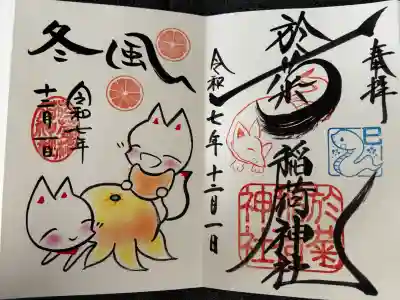 奉拝
於菊稲荷神社
令和七年十二月一日
巳
於菊
神社
冬風
令和七年
十二月一日